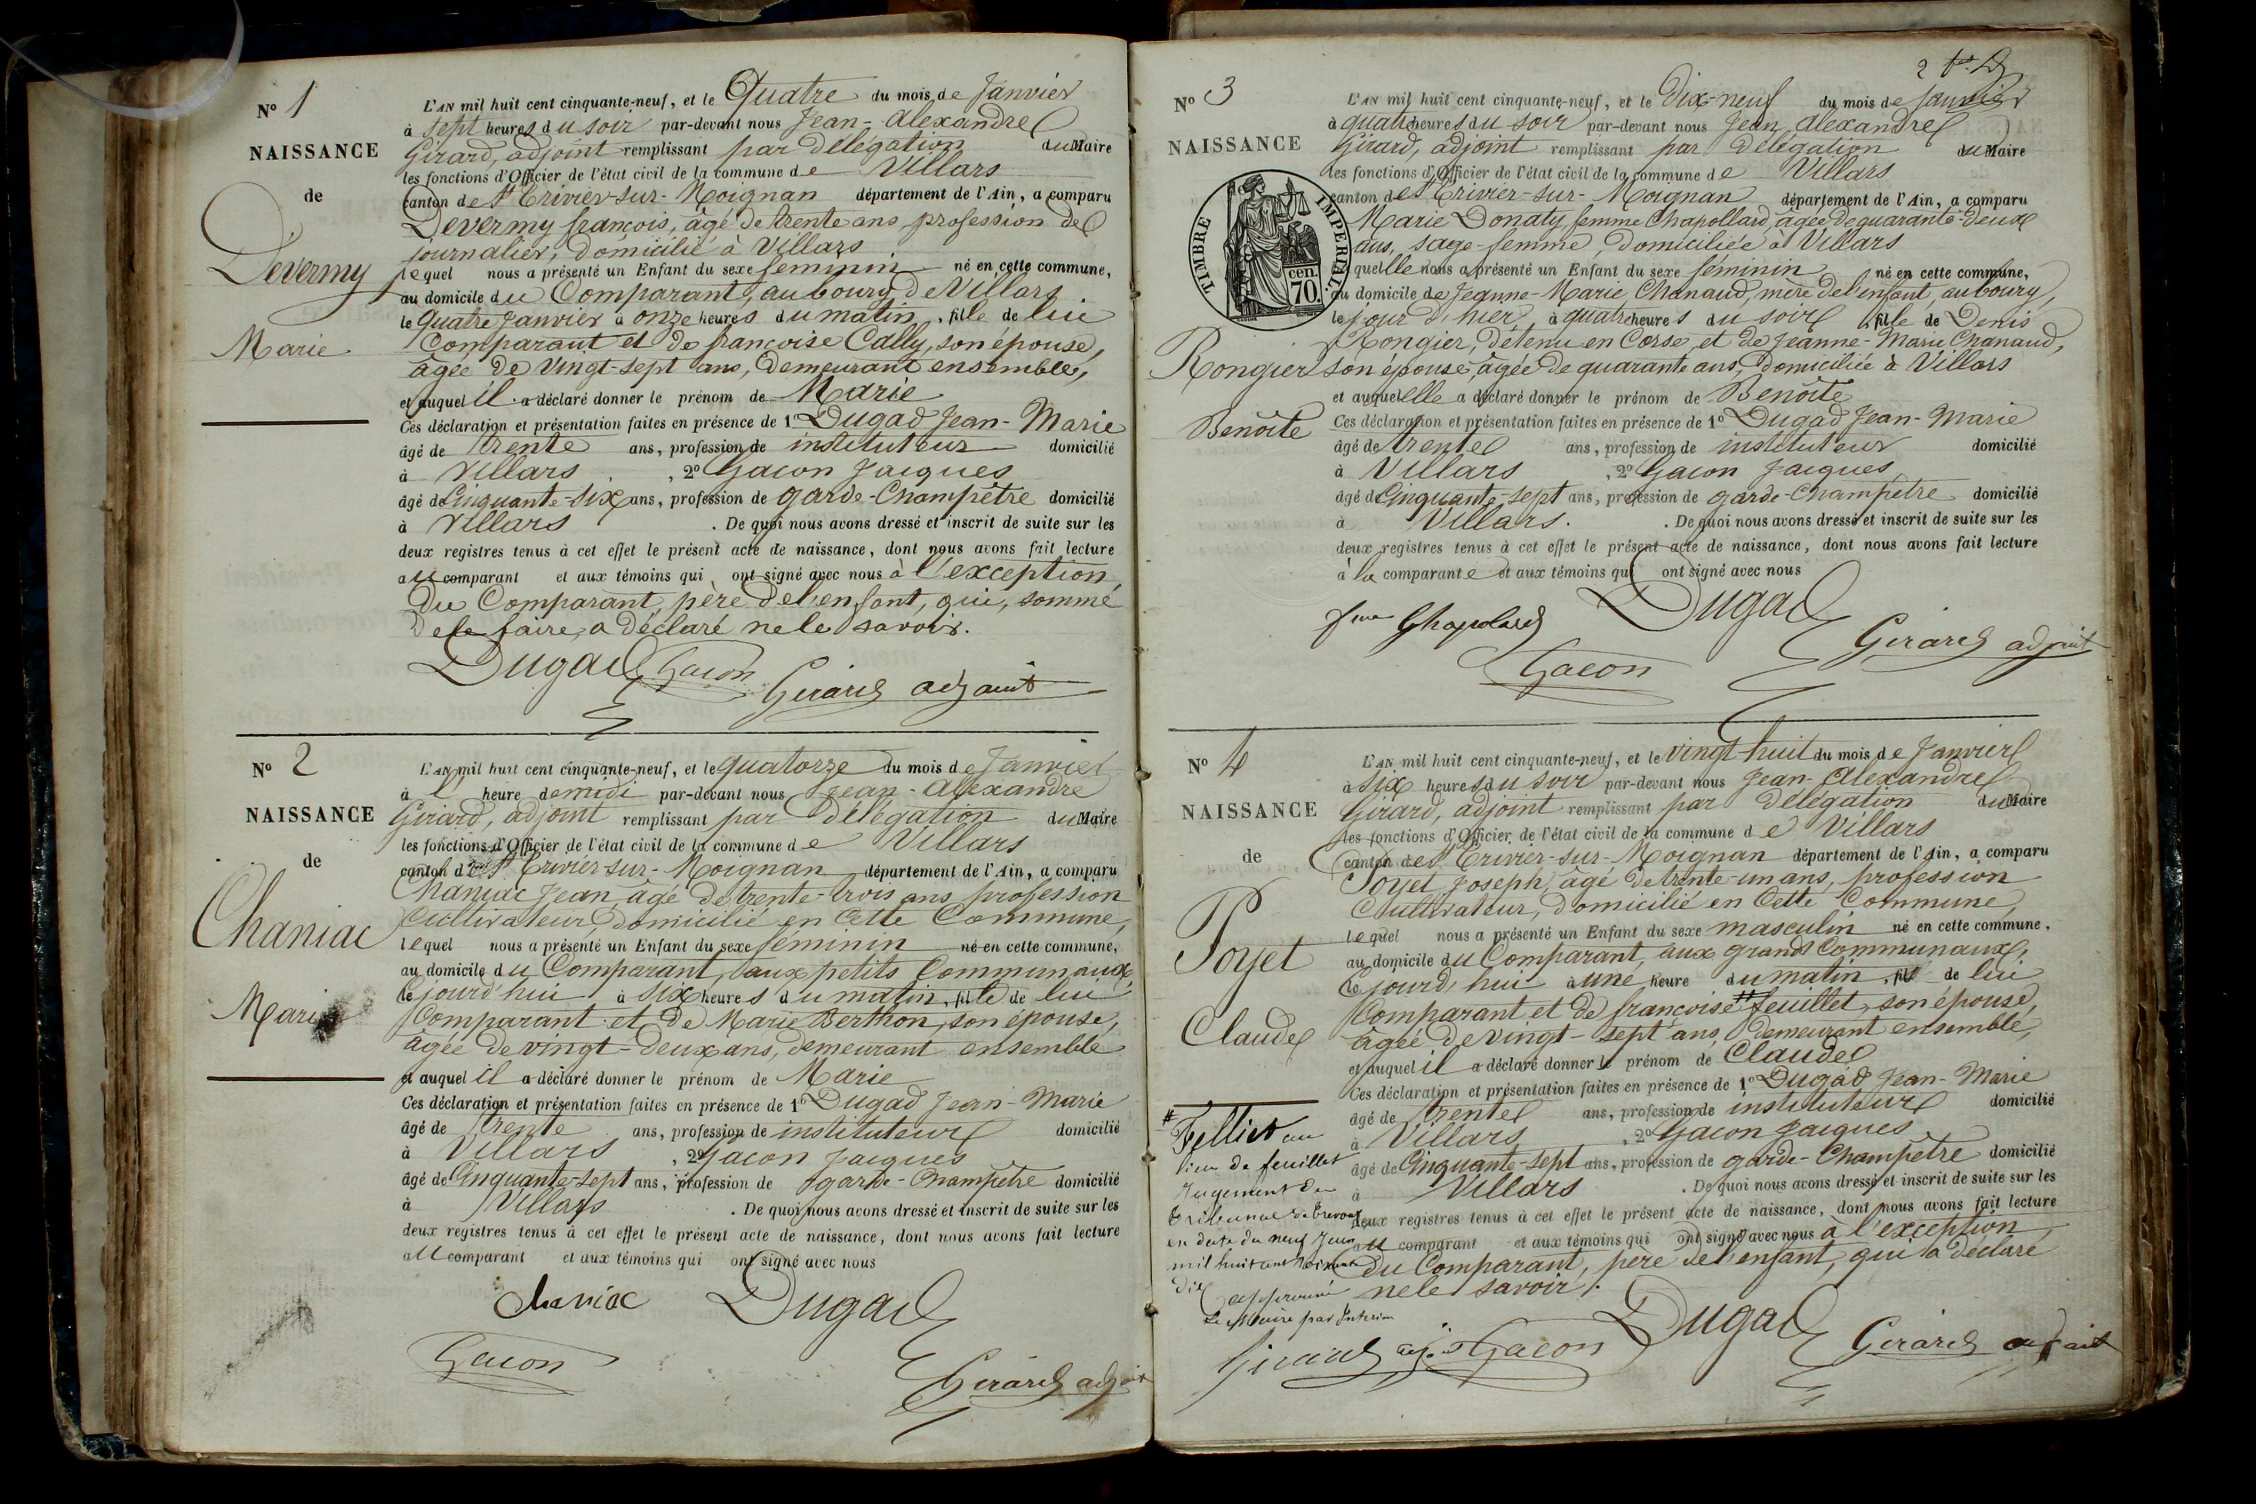 N° 1
NAISSANCE
de
Devermy
Marie
L'AN mil huit cent cinquante-neuf, et le Quatre du mois de Janvier
à sept heures du soir par-devant nous Jean-Alexandre
Girard, adjoint remplissant par délégation du Maire
les fonctions d'Officier de l'état civil de la commune de Villars
canton de St Trivier-sur-Moignan département de l'Ain, a comparu
Devermy françois, âgé de trente ans, profession de
journalier, domicilié à Villars
lequel nous a présenté un Enfant du sexe féminin né en cette commune,
au domicile du Comparant, au bourg de Villars
le Quatre Janvier à onze heures du matin, fille de lui
Comparant et de françoise Cally, son épouse,
âgée de Vingt-sept ans, demeurant ensemble,
et auquel il a déclaré donner le prénom de Marie
Ces déclaration et présentation faites en présence de 1° Dugad Jean-Marie
âgé de trente ans, profession de instituteur domicilié
à Villars, 2° Gacon Jacques
âgé de Cinquante-six ans, profession de garde-Champêtre domicilié
à Villars. De quoi nous avons dressé et inscrit de suite sur les
deux registres tenus à cet effet le présent acte de naissance, dont nous avons fait lecture
au comparant et aux témoins qui ont signé avec nous à l'exception
du Comparant, père de l'enfant, qui, sommé
de le faire, a déclaré ne le savoir.
Dugad Gacon Girard adjoint
N° 2
NAISSANCE
de
Chaniac
Marie
L'AN mil huit cent cinquante-neuf, et le quatorze du mois de Janvier
à heure de midi par-devant nous Jean-Alexandre
Girard, adjoint remplissant par délégation du Maire
les fonctions d'Officier de l'état civil de la commune de Villars
canton de St Trivier-sur-Moignan département de l'Ain, a comparu
Chaniac Jean, âgé de trente-trois ans, profession
Cultivateur, domicilié en Cette Commune,
lequel nous a présenté un Enfant du sexe féminin né en cette commune,
au domicile du Comparant, aux petits Communaux,
le jourd'hui à six heures du matin, fille de lui
Comparant et de Marie Berthon, son épouse,
âgée de vingt-deux ans, demeurant ensemble
et auquel il a déclaré donner le prénom de Marie
Ces déclaration et présentation faites en présence de 1° Dugad Jean-Marie
âgé de trente ans, profession de instituteur domicilié
à Villars, 2° Gacon Jacques
âgé de Cinquante-sept ans, profession de garde-Champêtre domicilié
à Villars. De quoi nous avons dressé et inscrit de suite sur les
deux registres tenus à cet effet le présent acte de naissance, dont nous avons fait lecture
au comparant et aux témoins qui ont signé avec nous
Chaniac Dugad
Gacon
Girard adjoint
2
N° 3
NAISSANCE
TIMBRE IMPÉRIAL.
70 cen.
Rongier
Benoîte
L'AN mil huit cent cinquante-neuf, et le Dix-neuf du mois de Janvier
à quatre heures du soir par-devant nous Jean Alexandre
Girard, adjoint remplissant par délégation du Maire
les fonctions d'Officier de l'état civil de la commune de Villars
canton de St Trivier-sur-Moignan département de l'Ain, a comparu
Marie Donaty, femme Chapollard, âgée de quarante-deux
ans, sage-femme, domiciliée à Villars
quelle nous a présenté un Enfant du sexe féminin né en cette commune,
au domicile de Jeanne-Marie Chanaud, mère de l'enfant, au bourg,
le jour d'hier, à quatre heures du soir, fille de Denis
Rongier, détenu en Corse, et de Jeanne-Marie Chanaud,
son épouse, âgée de quarante ans, domiciliée à Villars
et auquel elle a déclaré donner le prénom de Benoîte
Ces déclaration et présentation faites en présence de 1° Dugad Jean-Marie
âgé de trente ans, profession de instituteur domicilié
à Villars, 2° Gacon Jacques
âgé de Cinquante-sept ans, profession de garde-Champêtre domicilié
à Villars. De quoi nous avons dressé et inscrit de suite sur les
deux registres tenus à cet effet le présent acte de naissance, dont nous avons fait lecture
à la comparante et aux témoins qui ont signé avec nous
fme Chapolard Dugad
Gacon Girard adjoint
N° 4
NAISSANCE
de
Poyet
Claude
L'AN mil huit cent cinquante-neuf, et le vingt-huit du mois de Janvier
à six heures du soir par-devant nous Jean-Alexandre
Girard, adjoint remplissant par délégation du Maire
les fonctions d'Officier de l'état civil de la commune de Villars
canton de St Trivier-sur-Moignan département de l'Ain, a comparu
Poyet Joseph, âgé de trente-un ans, profession
Cultivateur, domicilié en Cette Commune,
lequel nous a présenté un Enfant du sexe masculin né en cette commune,
au domicile du Comparant, aux grands Communaux,
le jourd'hui à une heure du matin, fils de lui
Comparant et de françoise # feuillet, son épouse,
âgée de vingt-sept ans, demeurant ensemble,
et auquel il a déclaré donner le prénom de Claude
Ces déclaration et présentation faites en présence de 1° Dugad Jean-Marie
âgé de trente ans, profession de instituteur domicilié
à Villars, 2° Gacon Jacques
âgé de Cinquante-sept ans, profession de garde-Champêtre domicilié
à Villars. De quoi nous avons dressé et inscrit de suite sur les
deux registres tenus à cet effet le présent acte de naissance, dont nous avons fait lecture
au comparant et aux témoins qui ont signé avec nous à l'exception
du Comparant, père de l'enfant, qui a déclaré
ne le savoir.
# Fellier au
lieu de feuillet
Jugement du
tribunal de Trevoux
en date du neuf Juin
mil huit cent soixante
dix
Le Maire par Interim
Girard adj.
Gacon Dugad Girard adjoint